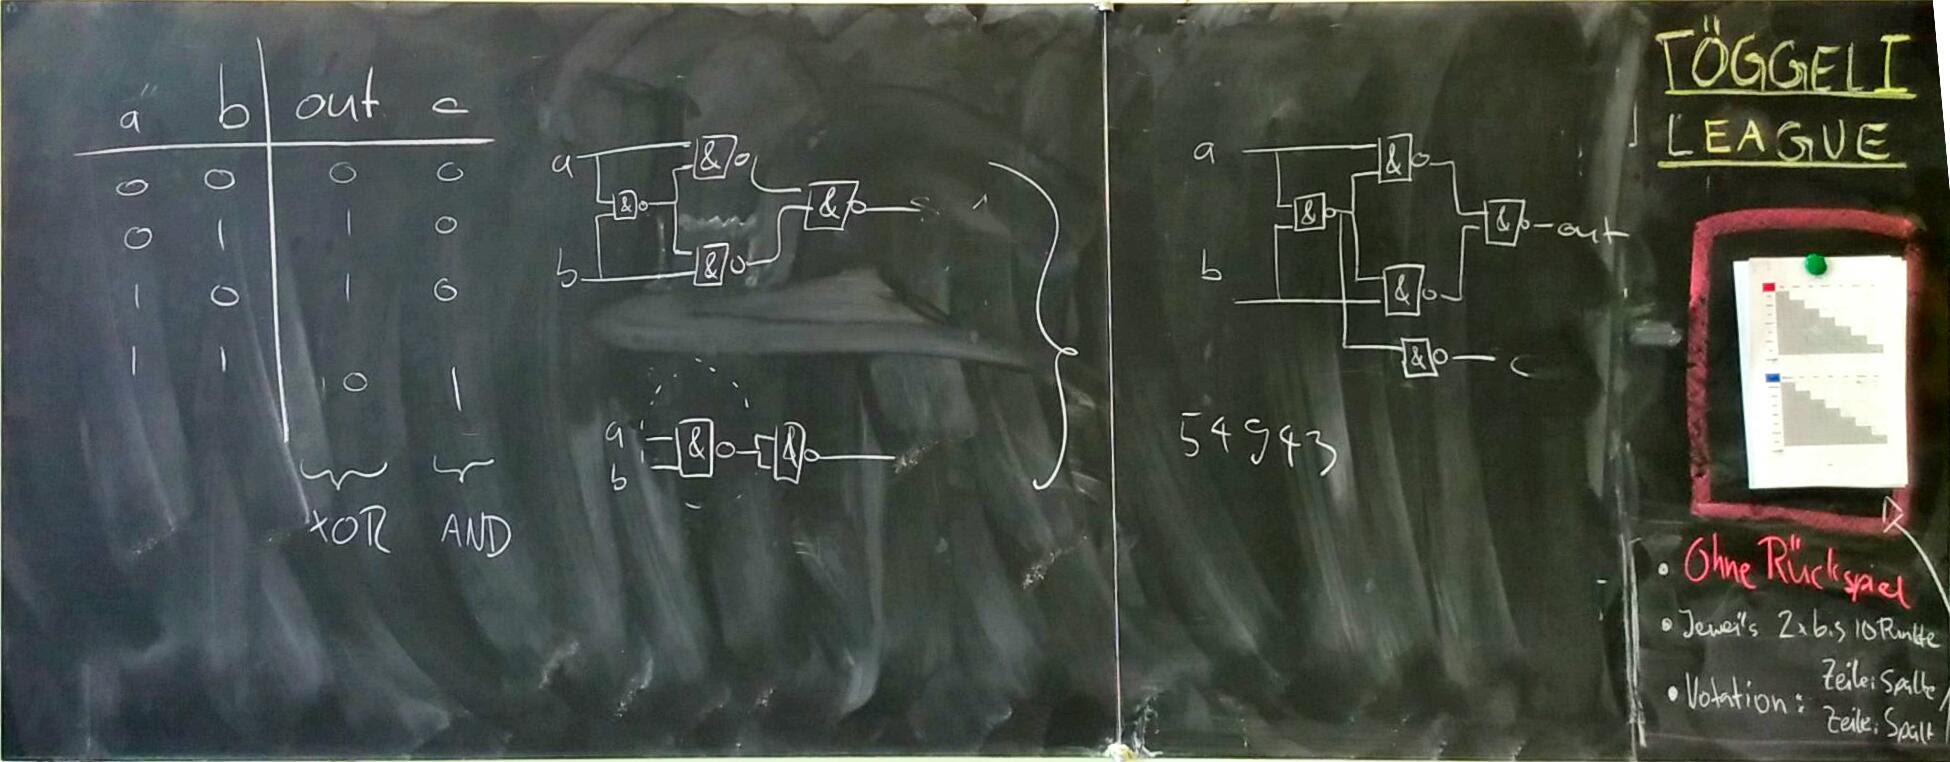 a b out c
0 0 0 0
0 1 1 0
1 0 1 0
1 1 0 1
XOR AND
a & &
&
b &
a & &
b
a & &
&
out
b &
& c
54943
TÖGGELI
LEAGUE
• Ohne Rückspiel
• Jeweils 2x bis 10 Punkte
• Notation: Zeile: Spalte
Zeile: Spalt